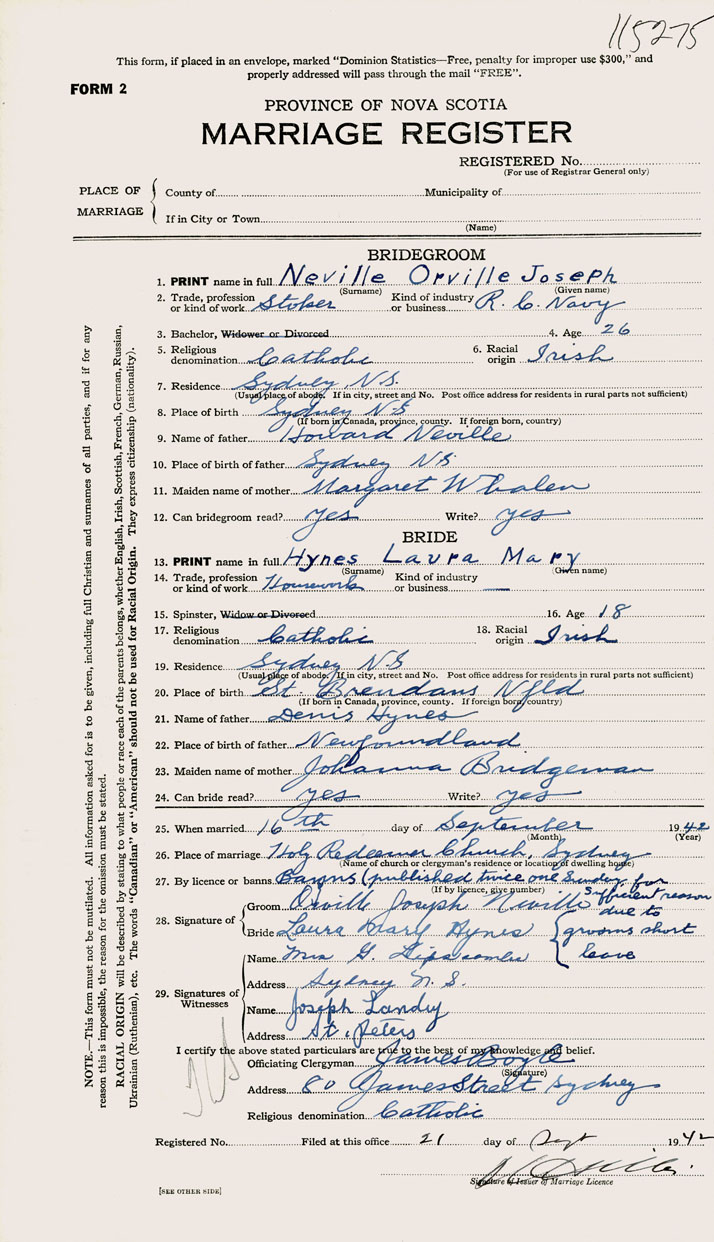 115275
This form, if placed in an envelope, marked "Dominion Statistics—Free, penalty for improper use $300," and
properly addressed will pass through the mail "FREE".
FORM 2
PROVINCE OF NOVA SCOTIA
MARRIAGE REGISTER
REGISTERED No.
(For use of Registrar General only)
PLACE OF MARRIAGE
County of Municipality of
If in City or Town
(Name)
BRIDEGROOM
1. PRINT name in full Neville Orville Joseph
(Surname) (Given name)
2. Trade, profession or kind of work Stoker Kind of industry or business R. C. Navy
3. Bachelor, Widower or Divorced 4. Age 26
5. Religious denomination Catholic 6. Racial origin Irish
7. Residence Sydney N.S.
(Usual place of abode. If in city, street and No. Post office address for residents in rural parts not sufficient)
8. Place of birth Sydney NS
(If born in Canada, province, county. If foreign born, country)
9. Name of father Howard Neville
10. Place of birth of father Sydney NS
11. Maiden name of mother Margaret Whalen
12. Can bridegroom read? yes Write? yes
BRIDE
13. PRINT name in full Hynes Laura Mary
(Surname) (Given name)
14. Trade, profession or kind of work Housework Kind of industry or business —
15. Spinster, Widow or Divorced 16. Age 18
17. Religious denomination Catholic 18. Racial origin Irish
19. Residence Sydney NS
(Usual place of abode. If in city, street and No. Post office address for residents in rural parts not sufficient)
20. Place of birth St. Brendans Nfld
(If born in Canada, province, county. If foreign born, country)
21. Name of father Denis Hynes
22. Place of birth of father Newfoundland
23. Maiden name of mother Johanna Bridgeman
24. Can bride read? yes Write? yes
25. When married 16th day of September 1942
(Month) (Year)
26. Place of marriage Holy Redeemer Church, Sydney
(Name of church or clergyman's residence or location of dwelling house)
27. By licence or banns Banns (published twice one Sunday, for
(If by licence, give number) sufficient reason
28. Signature of Groom Orville Joseph Neville due to
Bride Laura Mary Hynes grooms short
leave
29. Signatures of Witnesses
Name Mrs G. Lipscombe
Address Sydney N.S.
Name Joseph Landry
Address St. Peters
I certify the above stated particulars are true to the best of my knowledge and belief.
Officiating Clergyman James Boyle
(Signature)
Address 80 James Street Sydney
Religious denomination Catholic
Registered No. Filed at this office 21 day of Sept 1942
Signature of Issuer of Marriage Licence
[SEE OTHER SIDE]
NOTE.—This form must not be mutilated. All information asked for is to be given, including full Christian and surnames of all parties, and if for any
reason this is impossible, the reason for the omission must be stated.
RACIAL ORIGIN will be described by stating to what people or race each of the parents belongs, whether English, Irish, Scottish, French, German, Russian,
Ukrainian (Ruthenian), etc. The words "Canadian" or "American" should not be used for Racial Origin. They express citizenship (nationality).